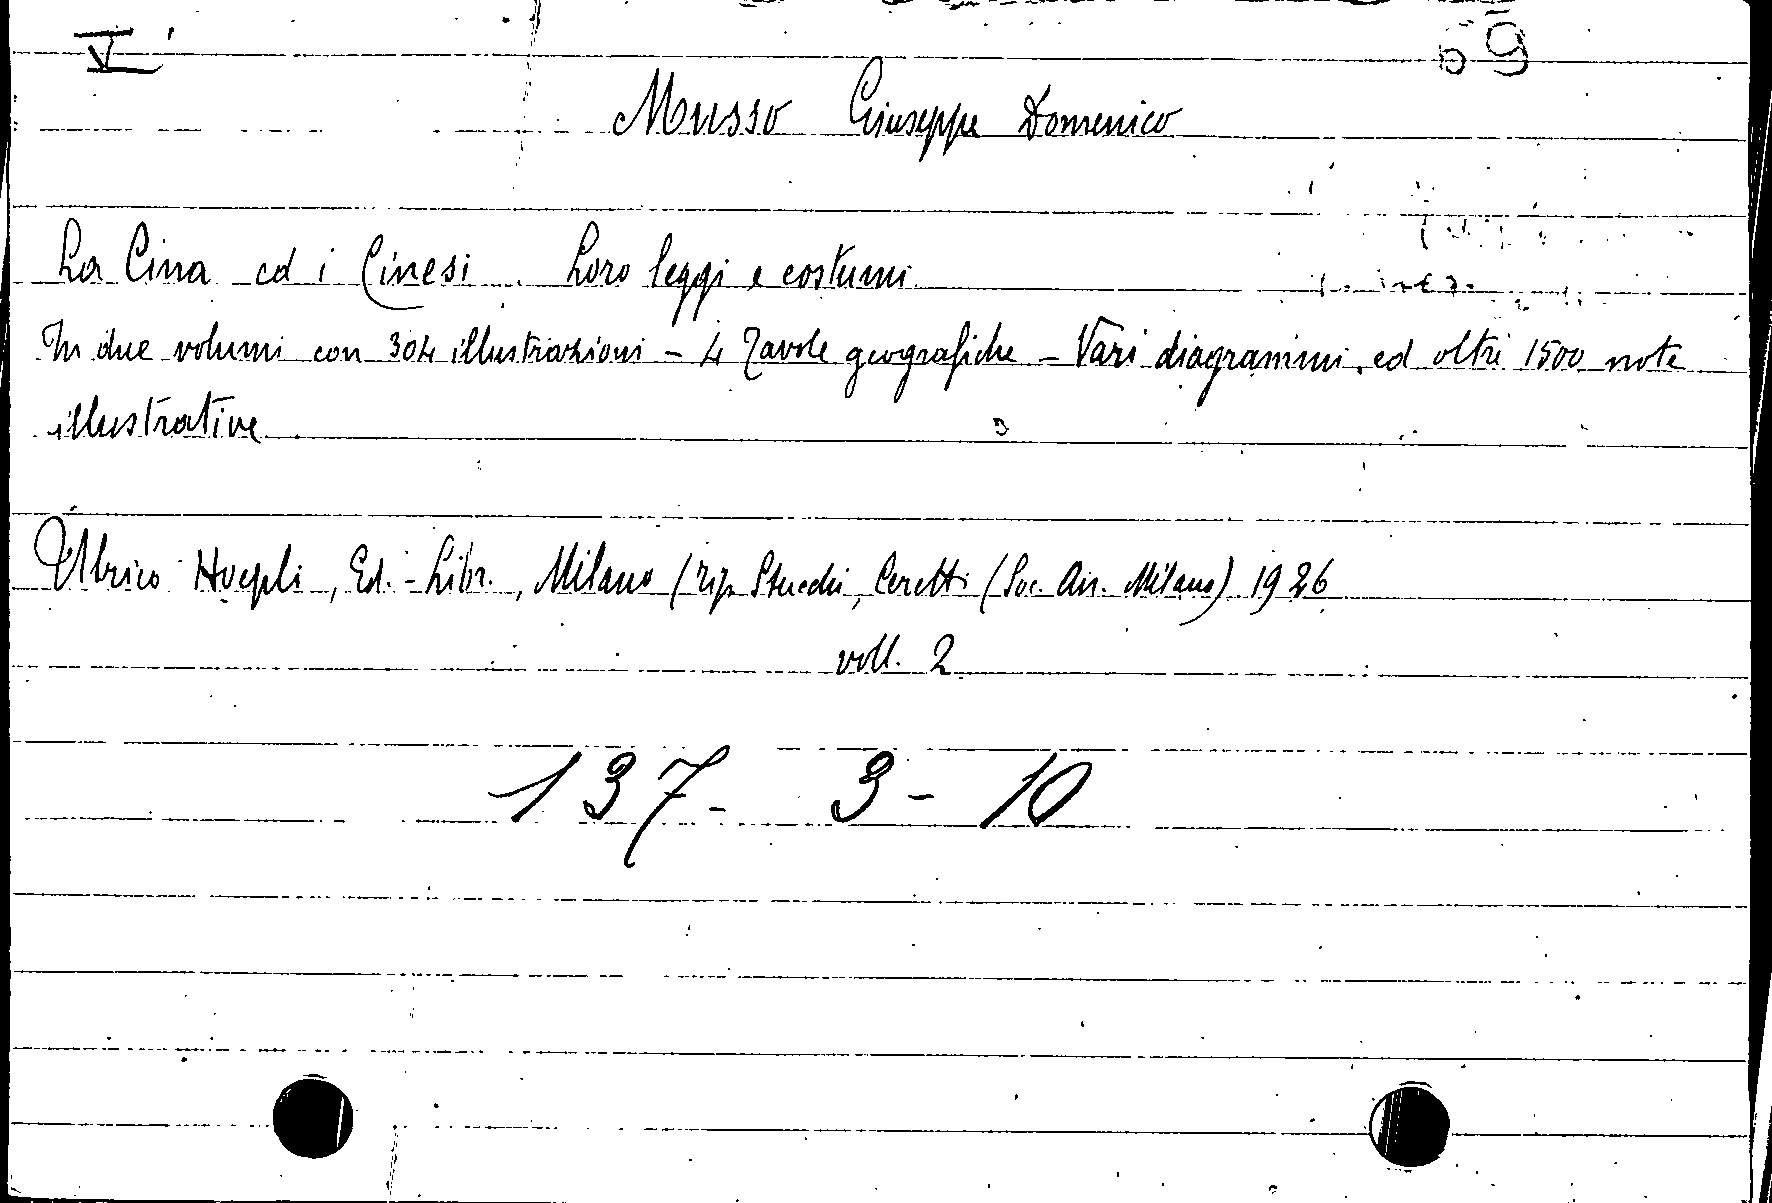 V
69
Musso Giuseppe Domenico
La Cina ed i Cinesi. Loro leggi e costumi
In due volumi con 304 illustrazioni - 4 Tavole geografiche - Vari diagrammi, ed oltre 1500 note
illustrative
Ulrico Hoepli, Ed. - Libr., Milano (Tip. Stucchi, Ceretti (Soc. An. Milano) 1926
voll. 2
137 - 3 - 10